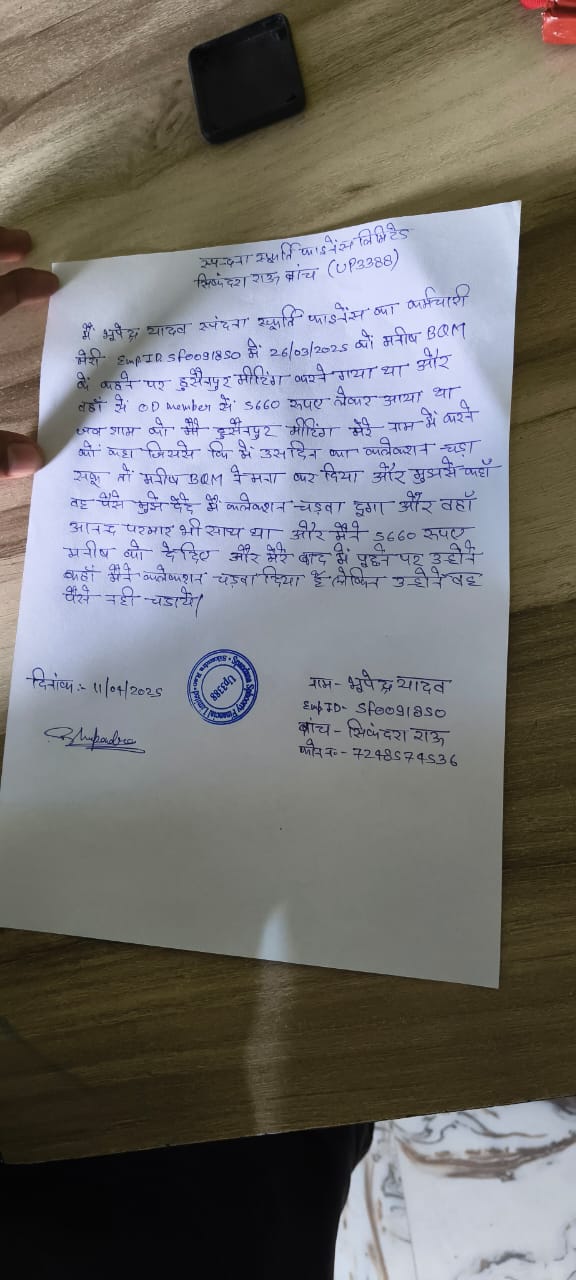 स्पन्दना स्फूर्ति फाइनेंस लिमिटेड
सिकंदरा राऊ ब्रांच (UP3388)
मैं भूपेन्द्र यादव स्पंदना स्फूर्ति फाइनेंस का कर्मचारी
मेरी Emp ID SF0091850 में 26/03/2025 को मनीष BQM
के कहने पर हुसैनपुर मीटिंग करने गया था और
वहाँ से OD member से 5660 रूपए लेकर आया था
जब शाम को मैने हुसैनपुर मीटिंग मेरे नाम में करने
को कहा जिससे कि में उस दिन का कलेक्शन चड़ा
सकू तो मनीष BQM ने मना कर दिया और मुझसे कहाँ
वह पैसे मुझे देदे में कलेक्शन चड़वा दूगा और वहाँ
आनन्द परमार भी साथ था और मैंने 5660 रूपए
मनीष को दे दिए और मेरे बाद में पूछने पर उन्होने
कहाँ मैने कलेक्शन चड़वा दिया है लेकिन उन्होने वह
पैसे नही चडाये।
दिनांक :- 11/04/2025
Bhupendra
Spandana Sphoorty Financial Limited
Sikandra Rao
UP3388
नाम - भूपेन्द्र यादव
Emp ID - SF0091850
ब्रांच - सिकंदरा राऊ
फोन नं० - 7248574536